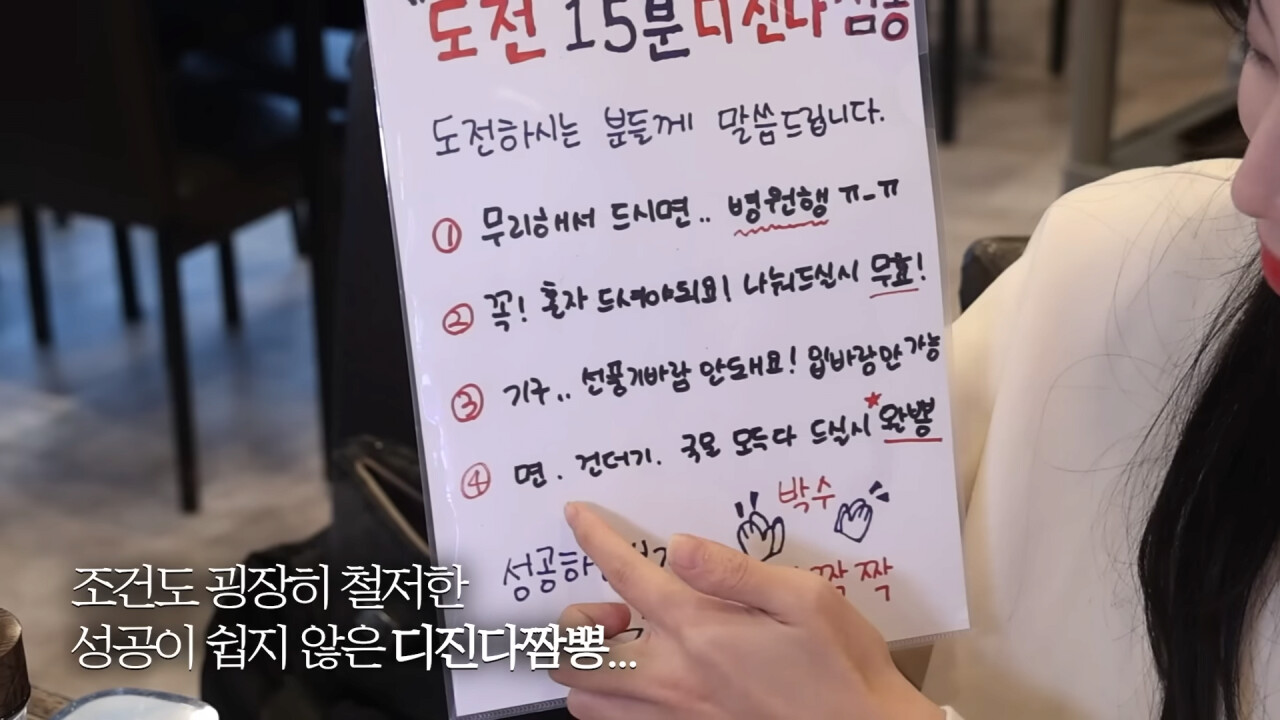 "도전 15분 디진다 짬뽕
도전하시는 분들께 말씀드립니다.
① 무리해서 드시면.. 병원행 ㅠ-ㅠ
② 꼭! 혼자 드셔야되요! 나눠드실시 무효!
③ 기구.. 선풍기바람 안돼요! 입바람만 가능
④ 면. 건더기. 국물 모두다 드실시 완뽕
박수
성공하
짝 짝
조건도 굉장히 철저한
성공이 쉽지 않은 디진다짬뽕...